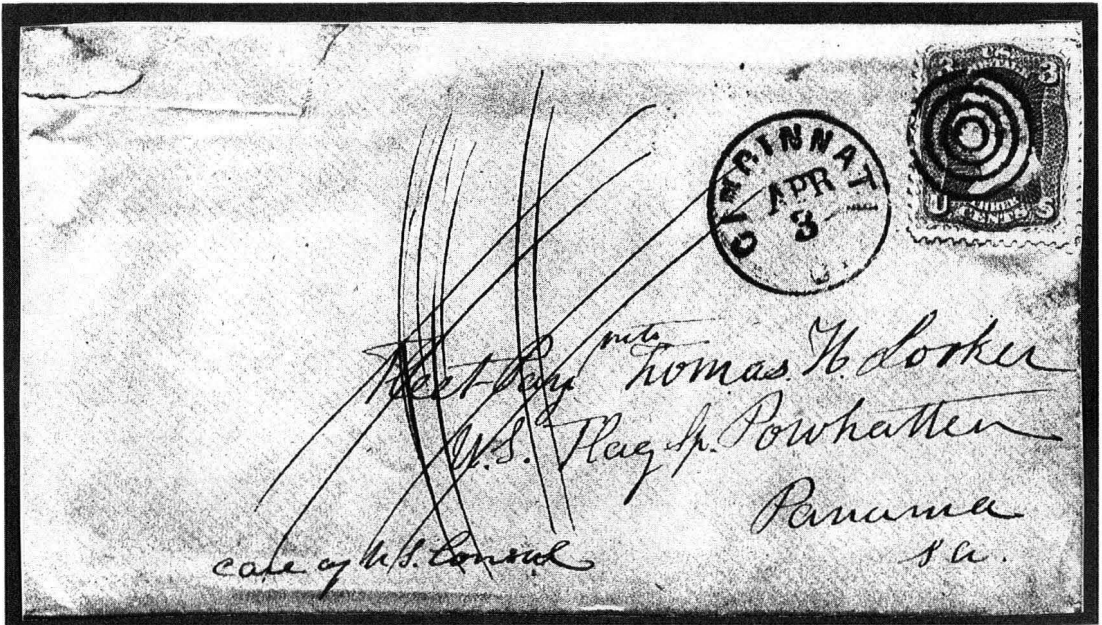 3 U.S. 3
CINCINNATI
APR
3
U CENTS S
Fleet Pay mts Thomas H. Looker
U.S. Flag Sp. Powhatten
Panama
s a.
care of U.S. Consul